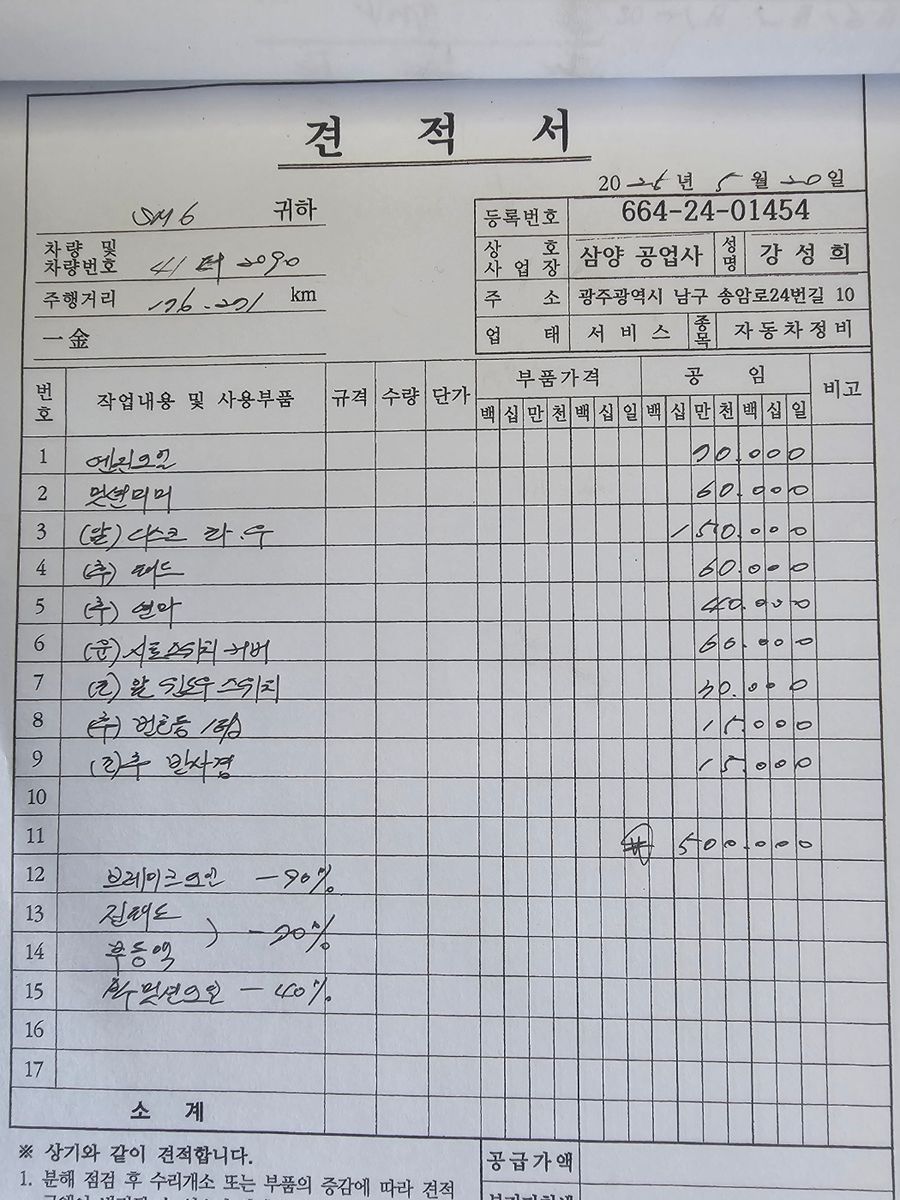 견 적 서
2025년 5월 20일
SM6 귀하
등록번호 664-24-01454
차량 및 차량번호 41 더 2090
상 호 사업장 삼양 공업사 성명 강성희
주행거리 km
주 소 광주광역시 남구 송암로24번길 10
一金
업 태 서비스 종목 자동차정비
번호 작업내용 및 사용부품 규격 수량 단가 부품가격 공 임 비고
백 십 만 천 백 십 일 백 십 만 천 백 십 일
1 엔진오일 70.000
2 밋션미미 60.000
3 (앞) 디스크 좌.우 150.000
4 (후) 패드 60.000
5 (후) 연마 40.000
6 (운) 시트스위치 커버 60.000
7 (조) 앞 윈도우 스위치 30.000
8 (후) 번호등 15.000
9 (조)후 반사경 15.000
10
11 ₩ 500.000
12 브레이크오일 -90%
13
14 부동액 -20%
15 미션오일 -40%
16
17
소 계
※ 상기와 같이 견적합니다.
공급가액
1. 분해 점검 후 수리개소 또는 부품의 증감에 따라 견적